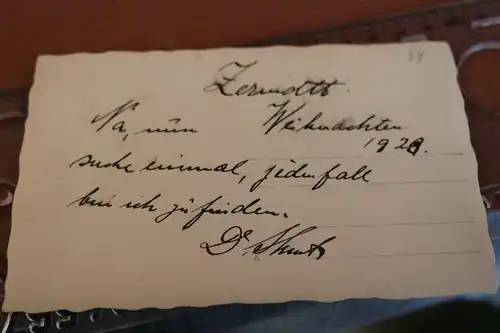 Zermatt.
Na, nun Weihnachten
1929.
suche einmal, jedenfalls
bin ich zu finden.
Dr